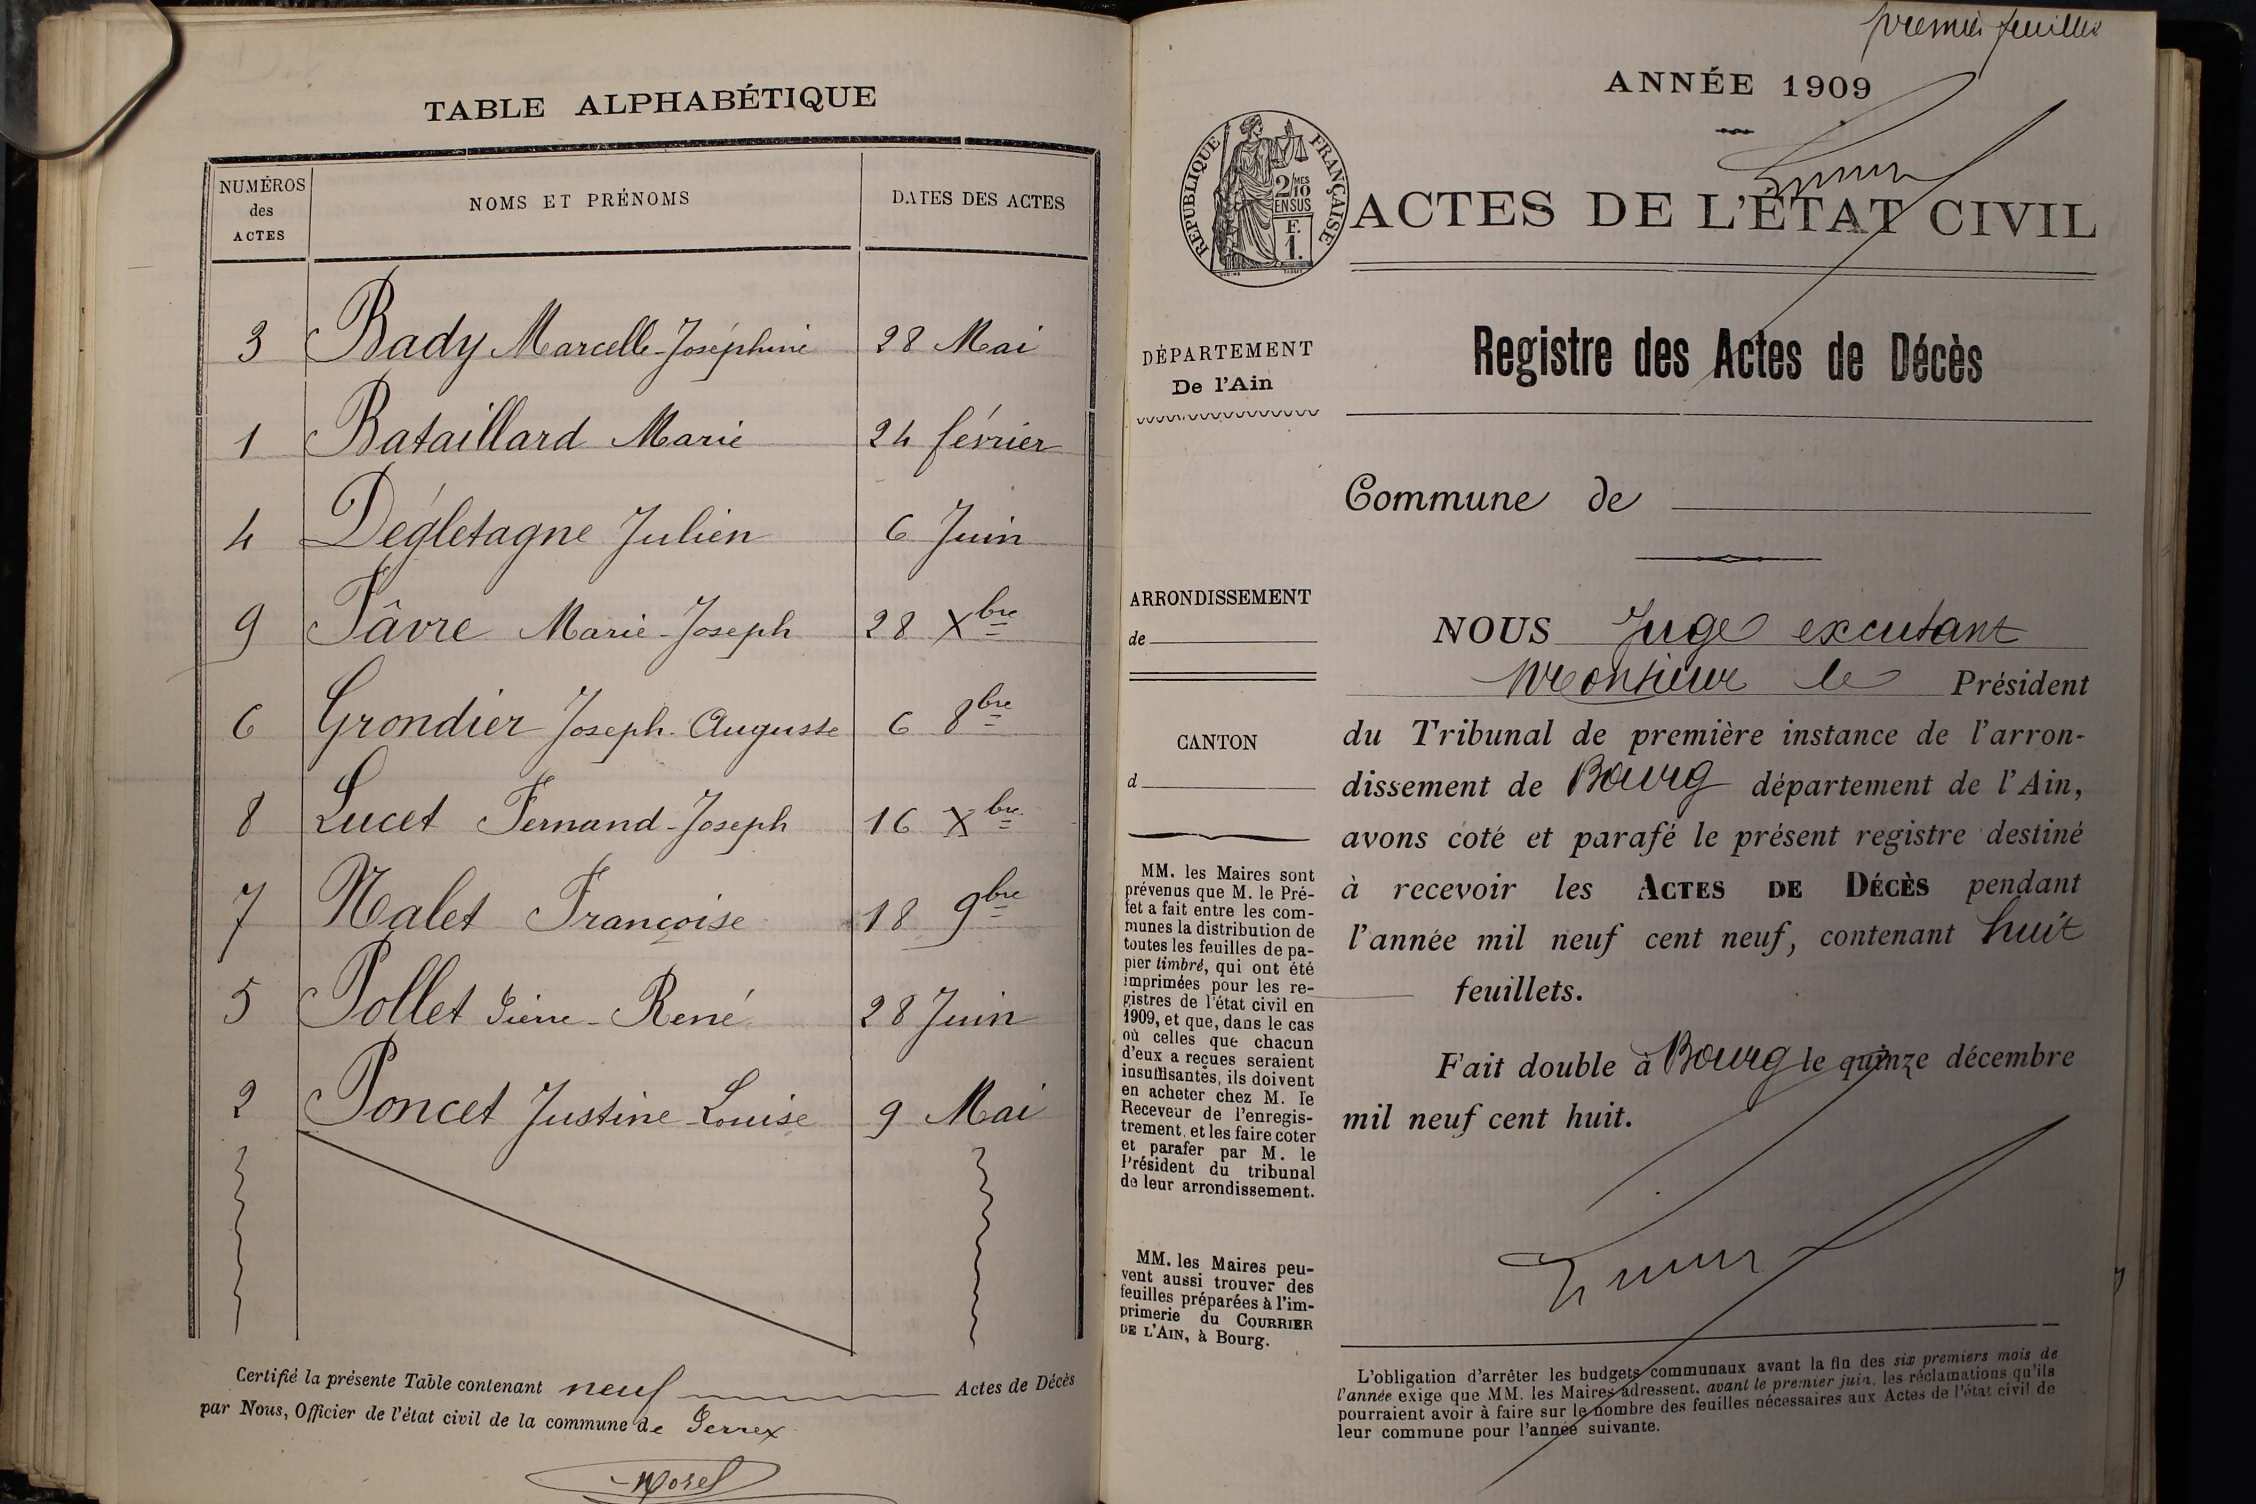 TABLE ALPHABÉTIQUE
NUMÉROS des ACTES
NOMS ET PRÉNOMS
DATES DES ACTES
3 Bady Marcelle-Joséphine 28 Mai
1 Bataillard Marie 24 février
4 Dégletagne Julien 6 Juin
9 Fâvre Marie-Joseph 28 Xbre
6 Grondier Joseph-Auguste 6 8bre
8 Lucet Fernand-Joseph 16 Xbre
7 Nalet Françoise 18 9bre
5 Pollet Pierre-René 28 Juin
2 Poncet Justine-Louise 9 Mai
Certifié la présente Table contenant neuf Actes de Décès
par Nous, Officier de l'état civil de la commune de Perrex
Morel
premier feuillet
ANNÉE 1909
RÉPUBLIQUE FRANÇAISE
2/MES 10
EN SUS
F.
1.
ACTES DE L'ÉTAT CIVIL
DÉPARTEMENT
De l'Ain
Registre des Actes de Décès
Commune de
ARRONDISSEMENT
de
CANTON
d
MM. les Maires sont
prévenus que M. le Pré-
fet a fait entre les com-
munes la distribution de
toutes les feuilles de pa-
pier timbré, qui ont été
imprimées pour les re-
gistres de l'état civil en
1909, et que, dans le cas
où celles que chacun
d'eux a reçues seraient
insuffisantes, ils doivent
en acheter chez M. le
Receveur de l'enregis-
trement, et les faire coter
et parafer par M. le
Président du tribunal
de leur arrondissement.
MM. les Maires peu-
vent aussi trouver des
feuilles préparées à l'im-
primerie du COURRIER
DE L'AIN, à Bourg.
NOUS Juge excutant
Monsieur le Président
du Tribunal de première instance de l'arron-
dissement de Bourg département de l'Ain,
avons coté et parafé le présent registre destiné
à recevoir les ACTES DE DÉCÈS pendant
l'année mil neuf cent neuf, contenant huit
feuillets.
Fait double à Bourg le quinze décembre
mil neuf cent huit.
L'obligation d'arrêter les budgets communaux avant la fin des six premiers mois de
l'année exige que MM. les Maires adressent, avant le premier juin, les réclamations qu'ils
pourraient avoir à faire sur le nombre des feuilles nécessaires aux Actes de l'état civil de
leur commune pour l'année suivante.